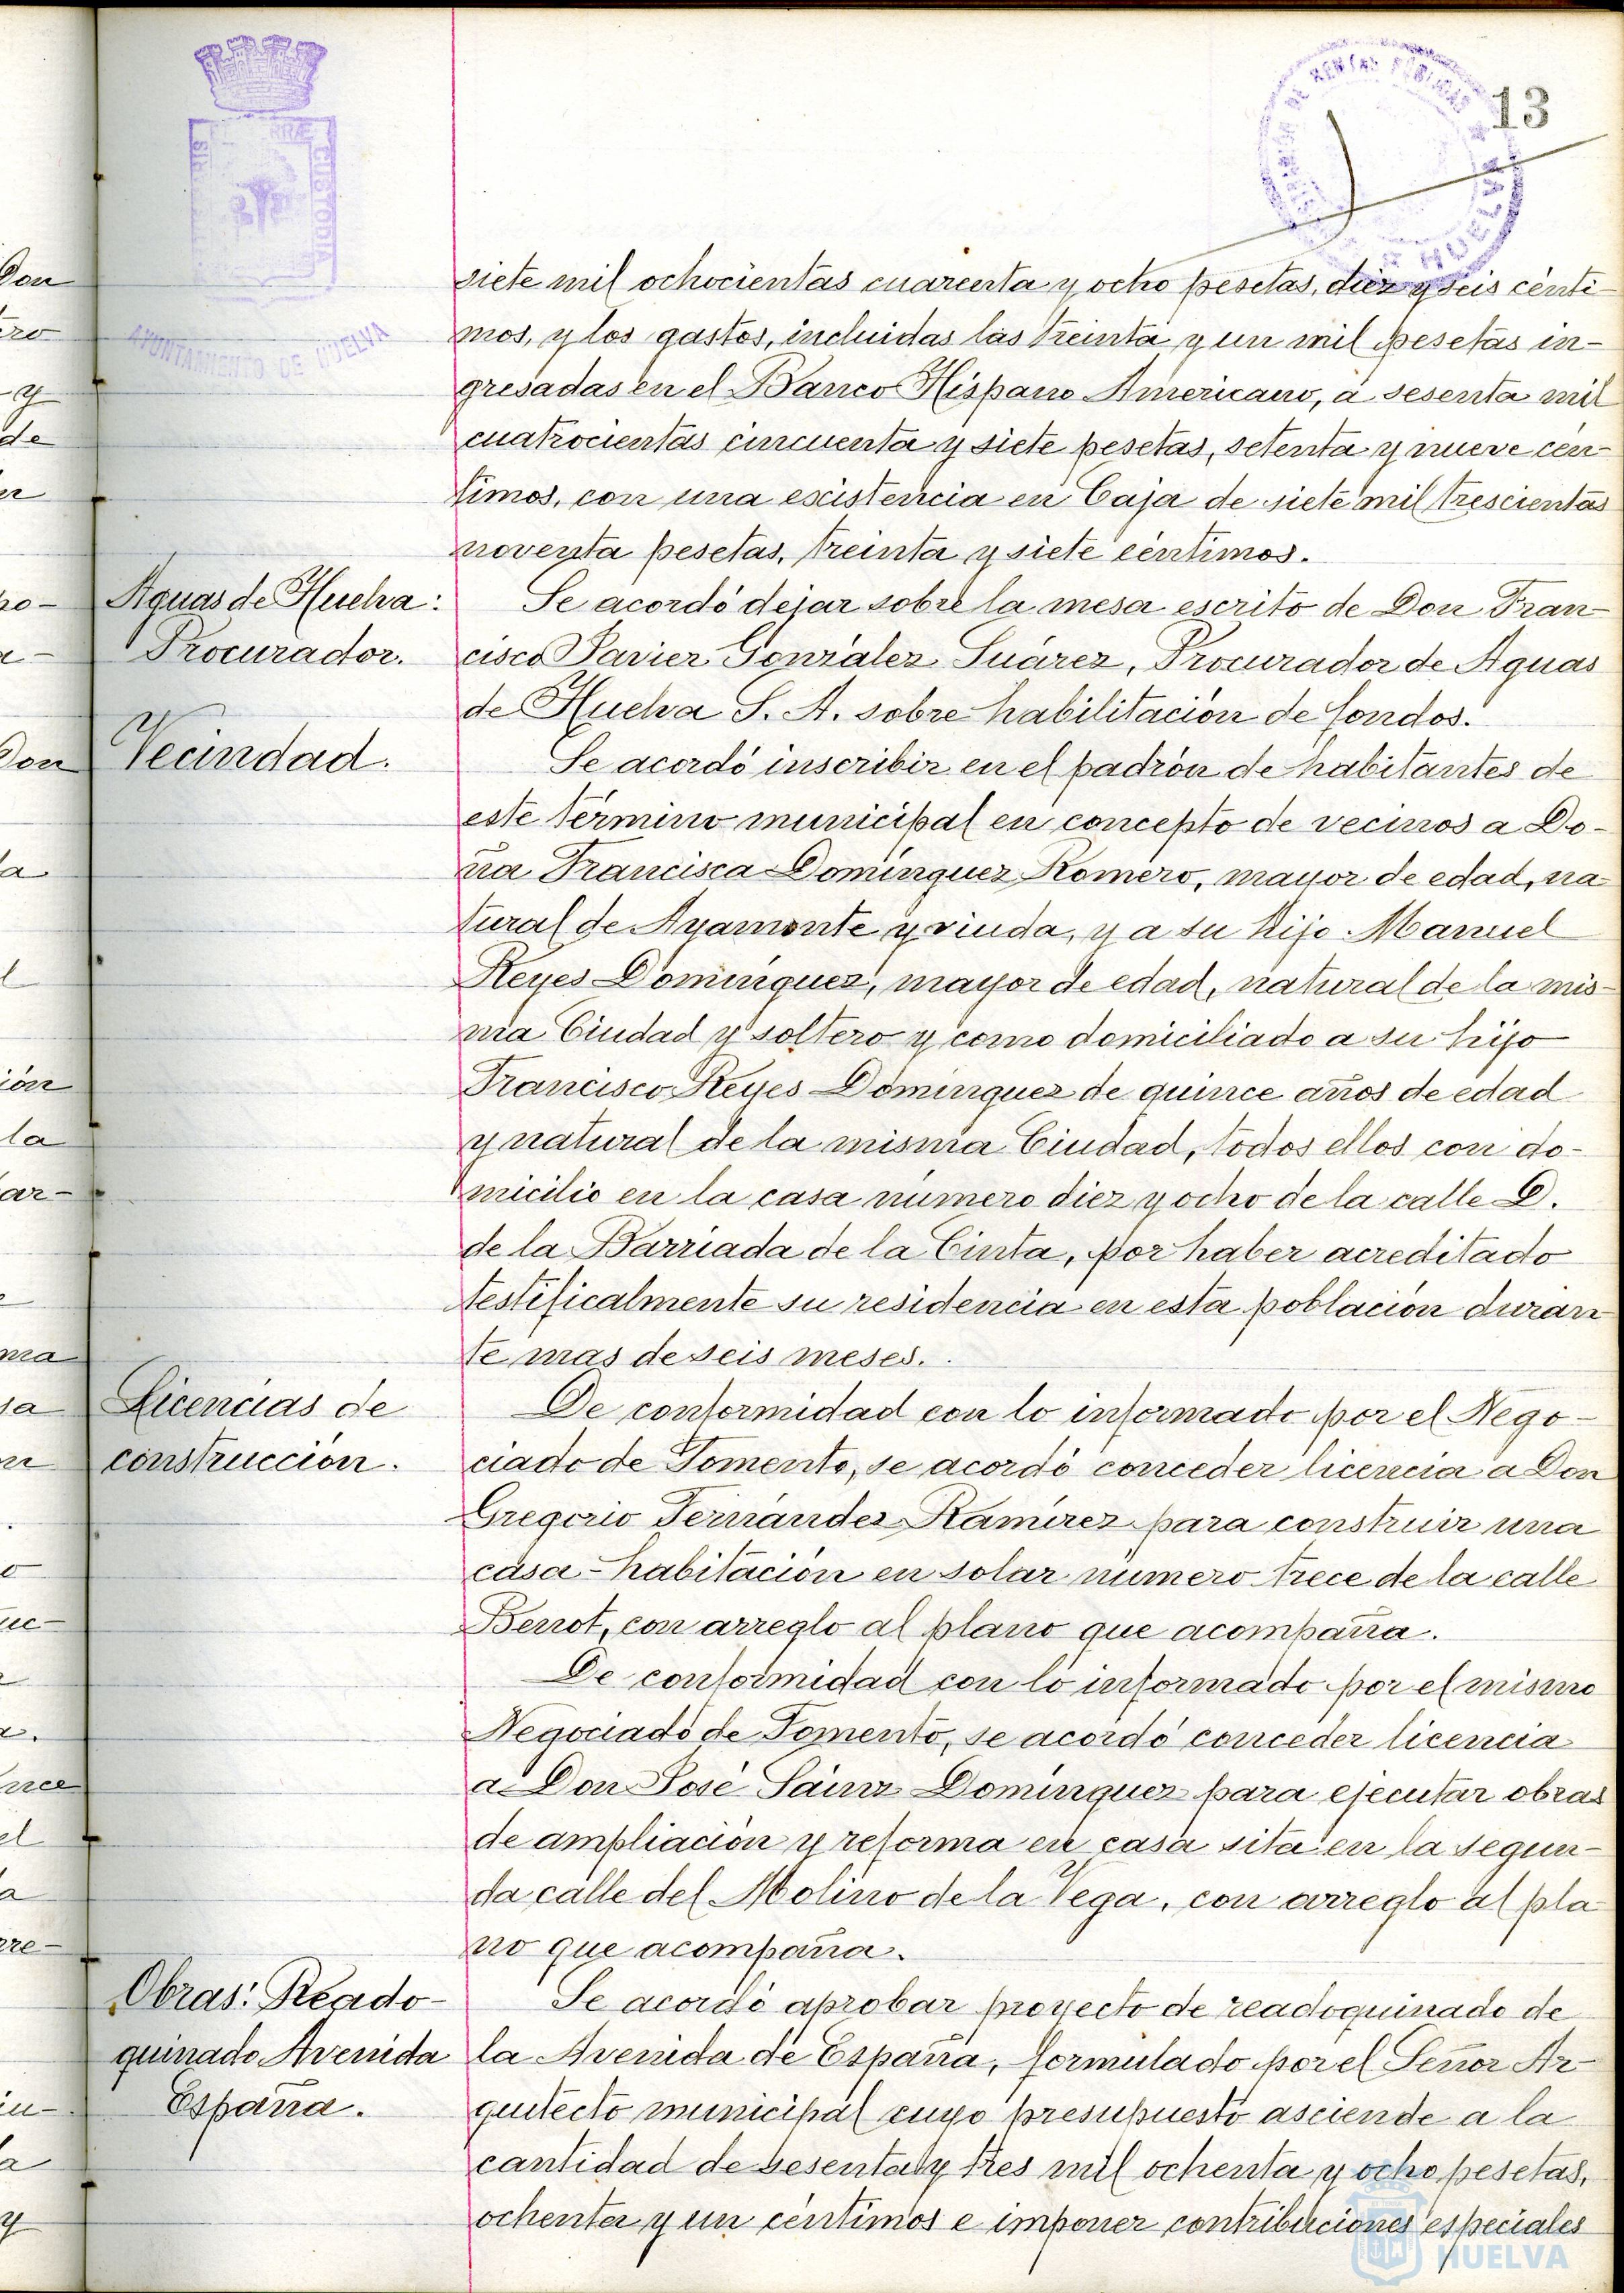 13
AYUNTAMIENTO DE HUELVA
siete mil ochocientas cuarenta y ocho pesetas, diez y seis cénti-
mos, y los gastos, incluidas las treinta y un mil pesetas in-
gresadas en el Banco Hispano Americano, a sesenta mil
cuatrocientas cincuenta y siete pesetas, setenta y nueve cén-
timos, con una existencia en Caja de siete mil trescientas
noventa pesetas, treinta y siete céntimos.
Aguas de Huelva:
Procurador.
Se acordó dejar sobre la mesa escrito de Don Fran-
cisco Javier González Suárez, Procurador de Aguas
de Huelva S. A. sobre habilitación de fondos.
Vecindad.
Se acordó inscribir en el padrón de habitantes de
este término municipal en concepto de vecinos a Do-
ña Francisca Domínguez Romero, mayor de edad, na-
tural de Ayamonte y viuda, y a su hijo Manuel
Reyes Domínguez, mayor de edad, natural de la mis-
ma Ciudad y soltero y como domiciliado a su hijo
Francisco Reyes Domínguez de quince años de edad
y natural de la misma Ciudad, todos ellos con do-
micilio en la casa número diez y ocho de la calle D.
de la Barriada de la Cinta, por haber acreditado
testificalmente su residencia en esta población duran-
te mas de seis meses.
Licencias de
construcción.
De conformidad con lo informado por el Nego-
ciado de Fomento, se acordó conceder licencia a Don
Gregorio Fernández Ramírez para construir una
casa-habitación en solar número trece de la calle
Benot, con arreglo al plano que acompaña.
De conformidad con lo informado por el mismo
Negociado de Fomento, se acordó conceder licencia
a Don José Sáinz Domínguez para ejecutar obras
de ampliación y reforma en casa sita en la segun-
da calle del Molino de la Vega, con arreglo al pla-
no que acompaña.
Obras: Reado-
quinado Avenida
España.
Se acordó aprobar proyecto de readoquinado de
la Avenida de España, formulado por el Señor Ar-
quitecto municipal cuyo presupuesto asciende a la
cantidad de sesenta y tres mil ochenta y ocho pesetas,
ochenta y un céntimos e imponer contribuciones especiales
HUELVA